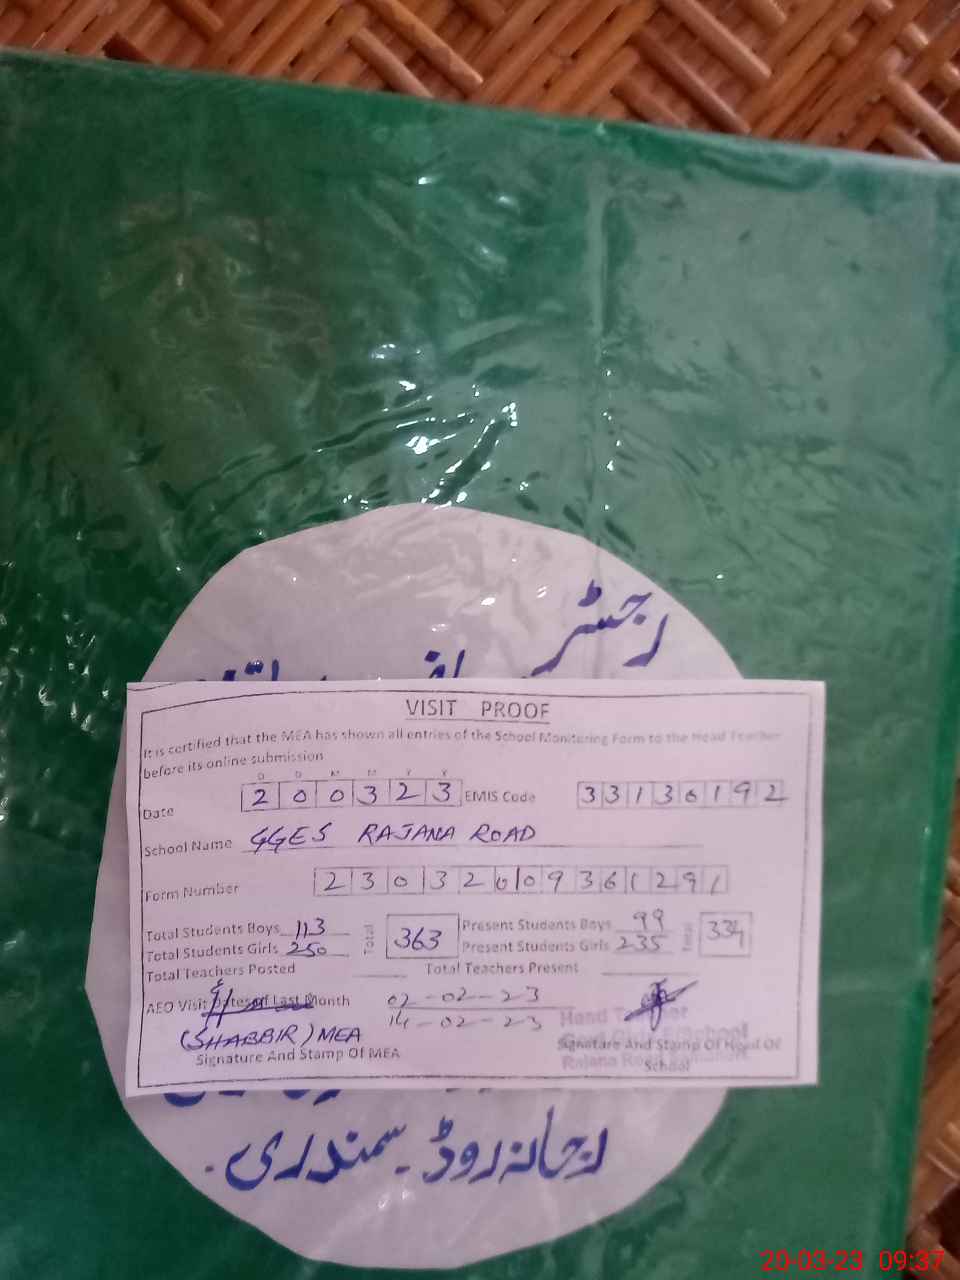 رجسٹر
VISIT PROOF
It is certified that the MEA has shown all entries of the School Monitoring Form to the Head Teacher
before its online submission
D D M M Y Y
Date 2 0 0 3 2 3 EMIS Code 3 3 1 3 6 1 9 2
School Name GGES RAJANA ROAD
Form Number 2 3 0 3 2 0 0 9 3 6 1 2 9 1
Total Students Boys 113 Total 363 Present Students Boys 99 Total 334
Total Students Girls 250 Present Students Girls 235
Total Teachers Posted Total Teachers Present
AEO Visit Dates of Last Month 02-02-23
14-02-23
Head Teacher
(SHABBIR) MEA
Signature And Stamp Of MEA
Signature And Stamp Of Head Of
School
رجانہ روڈ۔ سمندری۔
20-03-23 09:37